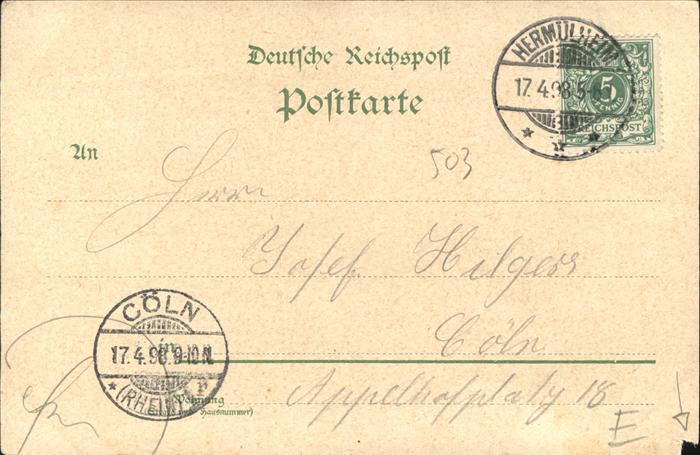 Deutsche Reichspost
Postkarte
HERMÜLHEIM
17.4.98. 5-6
5
PFENNIG
REICHSPOST
An
503
Herrn
Josef Hilgers
CÖLN
17.4.98 9-10 N.
(RHEIN)
in
Cöln
Wohnung
(Straße und Hausnummer)
Appelhofplatz 18
E